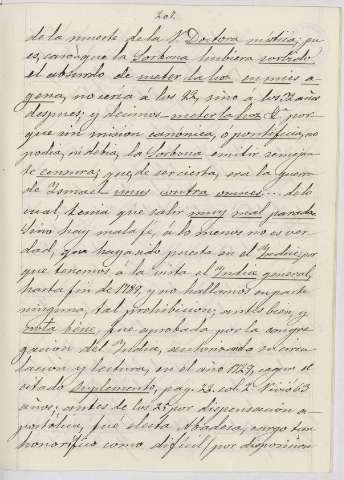 207.
de la muerte de la V. Doctora mística; pu-
es, caso que la Sorbona hubiera soltado
el absurdo de meter la hoz en mies a-
gena, no sería á los 22, sino á los 72 años
despues; y decimos meter la hoz &ª por-
que sin misión canónica, o pontificia, no
podia, ni debia, la Sorbona emitir semejan-
te censura; que, de ser cierta, era la guerra
de Ismael unus contra omnes... de lo
cual, tenia que salir muy mal parada.
Sino hay mala fe, a lo menos no es ver-
dad, que haya sido puesta en el Indice; por
que tenemos á la vista el Indice general,
hasta fin de 1789, y no hallamos en parte
ninguna, tal prohibicion; antes bien, y
nota bene, fue aprobada por la Congre-
gacion del Indice, autorizando su circu-
lacion y lectura, en el año 1729, segun el
citado suplemento, pag. 23, col. 2. Vivió 63
años; antes de los 25 por dispensación a-
postólica, fué electa Abadesa, cargo tan
honorífico como difícil, por disposicion